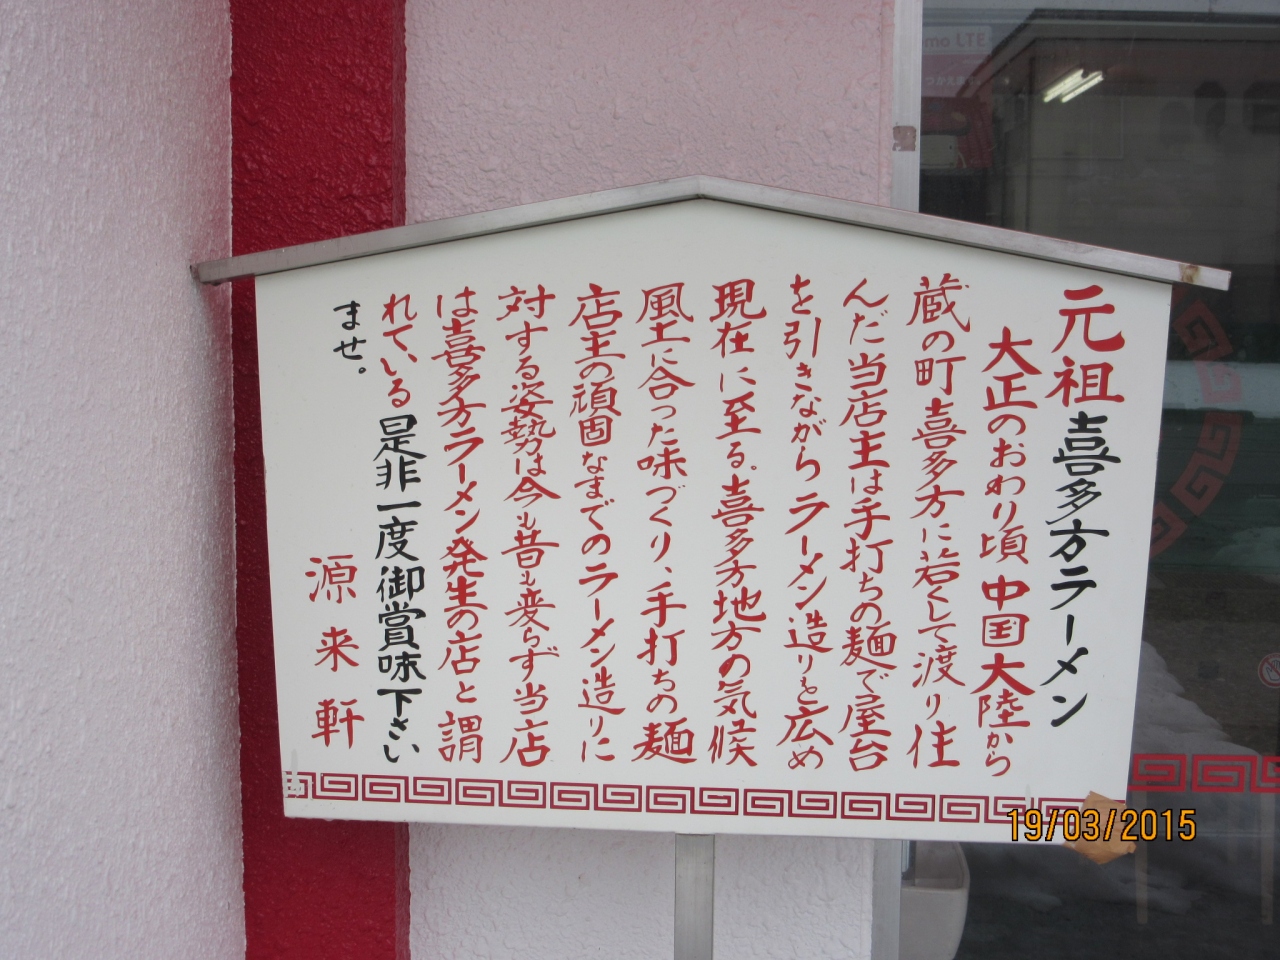 元祖喜多方ラーメン
大正のおわり頃中国大陸から
蔵の町喜多方に若くして渡り住
んだ当店主は手打ちの麺で屋台
を引きながらラーメン造りを広め
現在に至る。喜多方地方の気候
風土に合った味づくり、手打ちの麺
店主の頑固なまでのラーメン造りに
対する姿勢は今も昔も変らず当店
は喜多方ラーメン発生の店と謂
れている是非一度御賞味下さい
ませ。
源来軒
19/03/2015